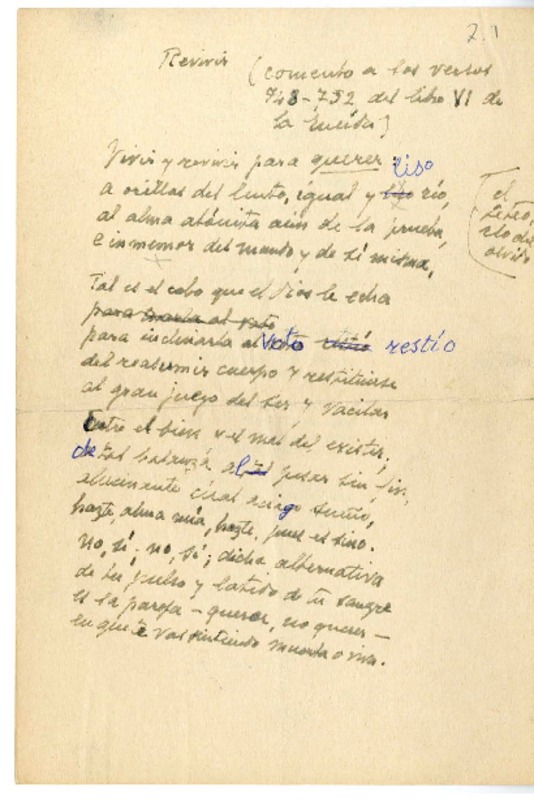 7.1
Revivir (comento a los versos
748-752 del libro VI de
la Eneida)
Vivir y revivir para querer:
a orillas del lento, igual y liso río,
al alma atónita aún de la prueba,
e inmemor del mundo y de sí misma,
el
Leteo,
río del
olvido
Tal es el cebo que el dios le echa
para al voto
para inclinarla al voto restío
del reasumir cuerpo y restituirse
al gran juego del ser y vacilar
Entre el bien y el mal del existir,
de tal balanza al pesar sin fin,
alucinante cual aciago sueño,
hazte, alma mía, hazte, pues es sino.
No, sí; no, sí; dicha alternativa
de tu pulso y latido de tu sangre
es la pareja - querer, no querer -
en que te vas sintiendo muerta o viva.